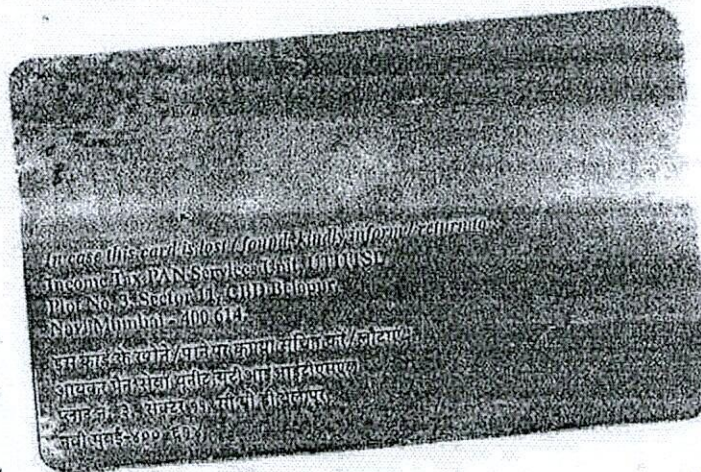 In case this card is lost / found, kindly inform / return to :
Income Tax PAN Services Unit, UTIITSL
Plot No. 3, Sector 11, CBD Belapur,
Navi Mumbai - 400 614.
इस कार्ड के खोने/पाने पर कृपया सूचित करें/लौटाएं :
आयकर पैन सेवा यूनीट,
प्लाट नं: ३, सेक्टर ११, सी.बी.डी.बेलापूर,
नवी मुंबई-४०० ६१४.